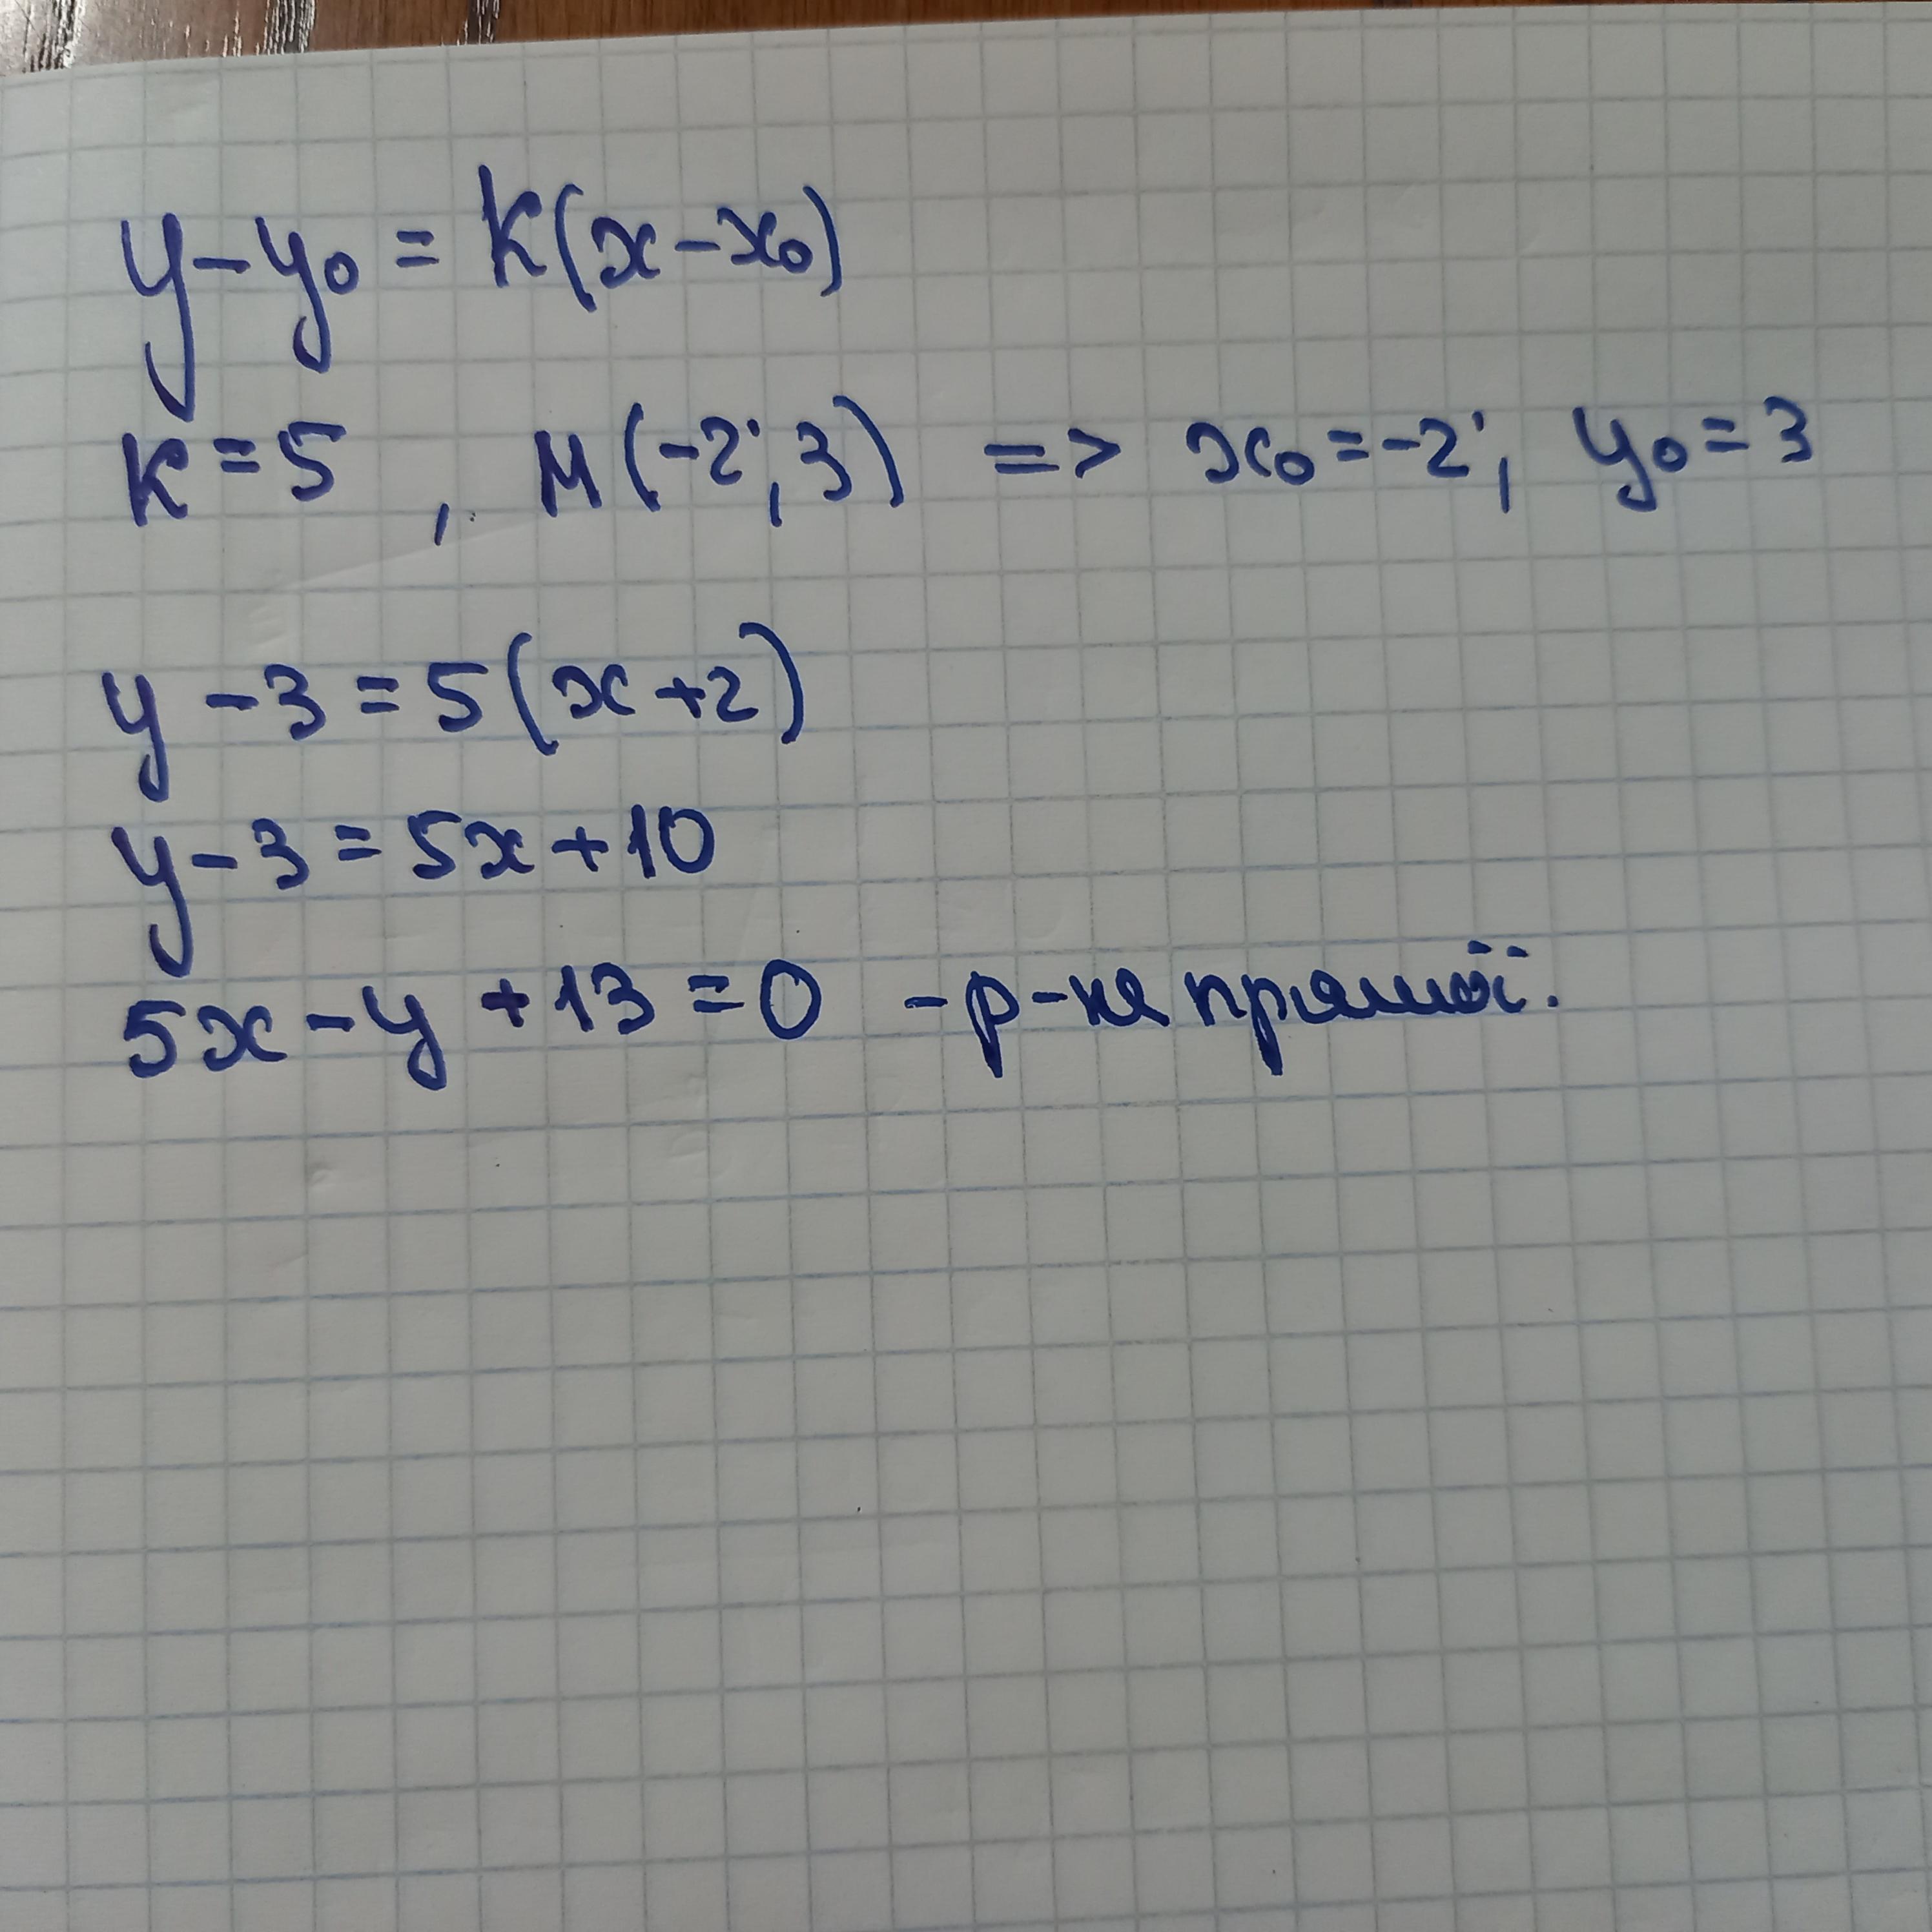 y-y₀ = k(x-x₀)
k=5 , M(-2; 3) => x₀=-2; y₀=3
y-3=5(x+2)
y-3=5x+10
5x-y+13=0 -р-ня прямої.